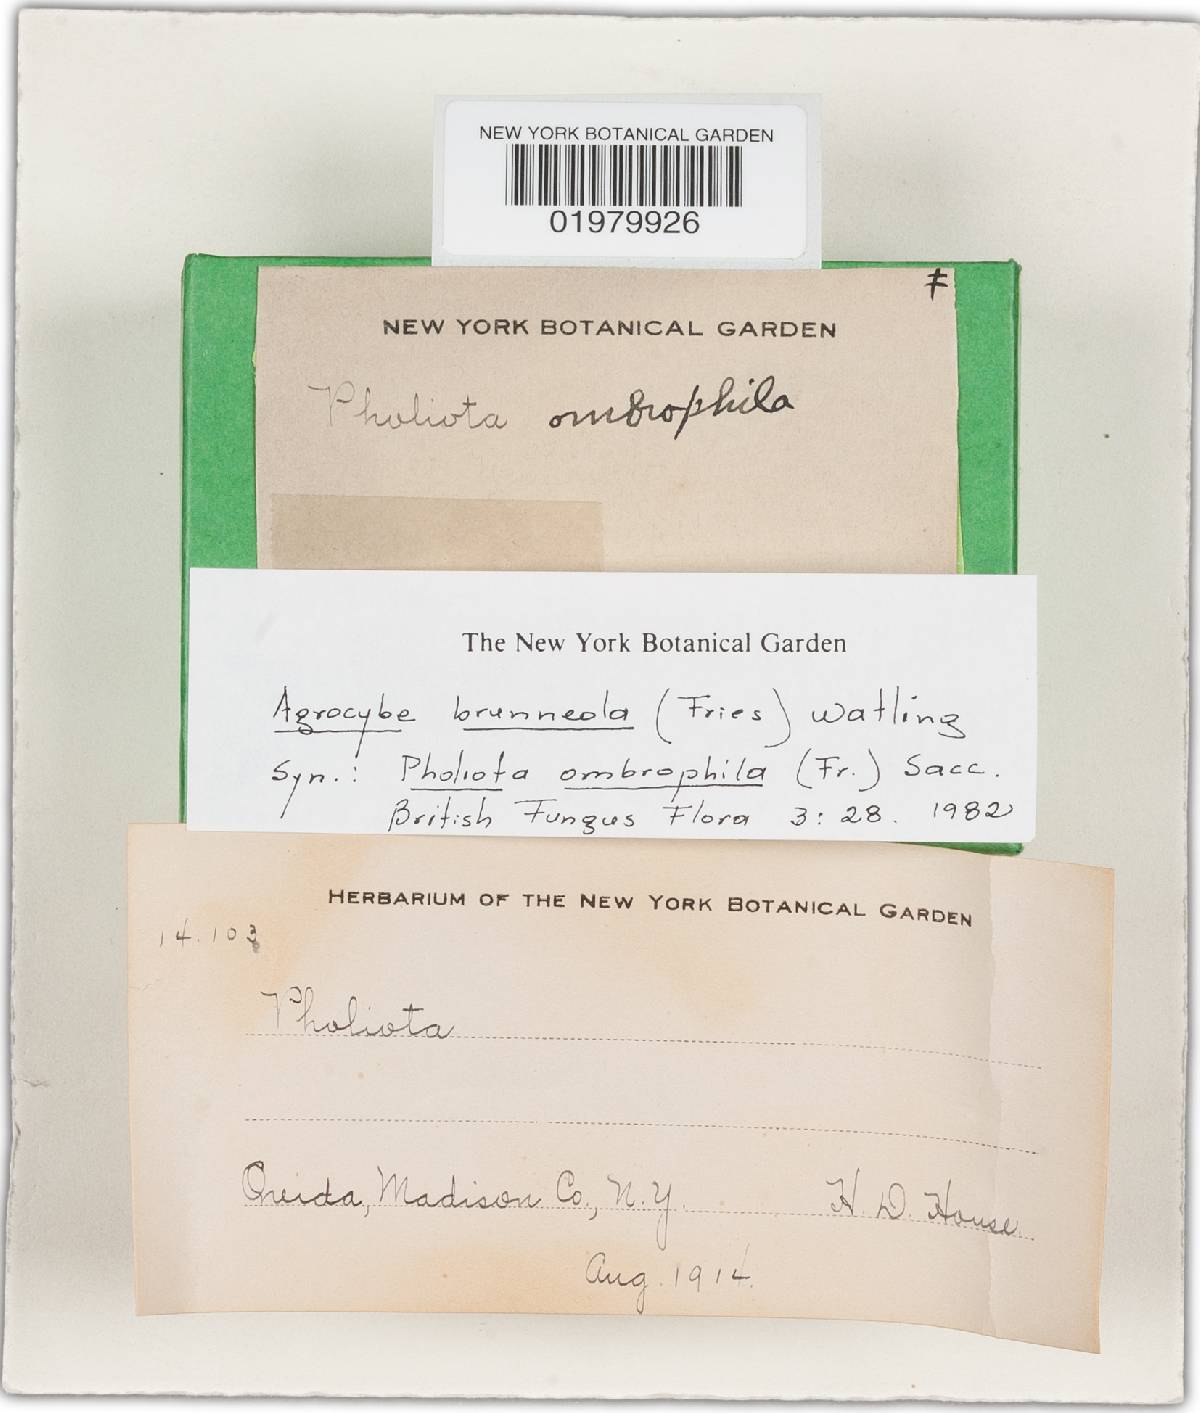 NEW YORK BOTANICAL GARDEN
01979926
NEW YORK BOTANICAL GARDEN
Pholiota ombrophila
The New York Botanical Garden
Agrocybe brunneola (Fries) Watling
Syn.: Pholiota ombrophila (Fr.) Sacc.
British Fungus Flora 3: 28. 1982
HERBARIUM OF THE NEW YORK BOTANICAL GARDEN
14.103
Pholiota
Oneida, Madison Co., N.Y. H. D. House
Aug. 1914.